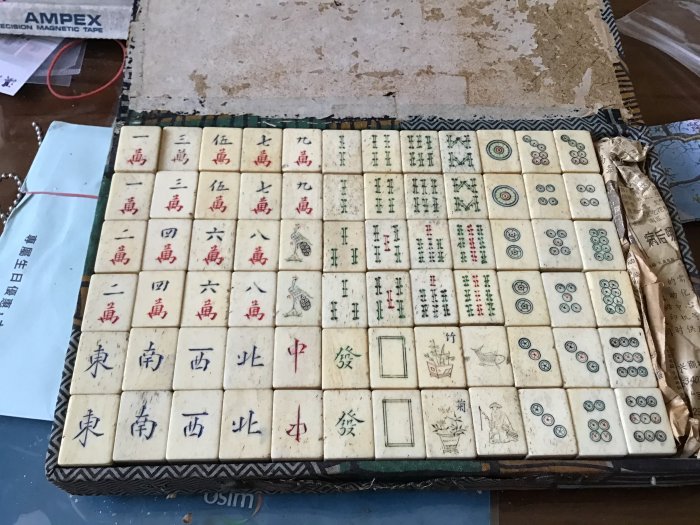 AMPEX
PRECISION MAGNETIC TAPE
一 三 伍 七 九
萬 萬 萬 萬 萬
一 三 伍 七 九
萬 萬 萬 萬 萬
二 四 六 八
萬 萬 萬 萬
二 四 六 八
萬 萬 萬 萬
東 南 西 北 中 發 竹
東 南 西 北 中 發 菊
usim